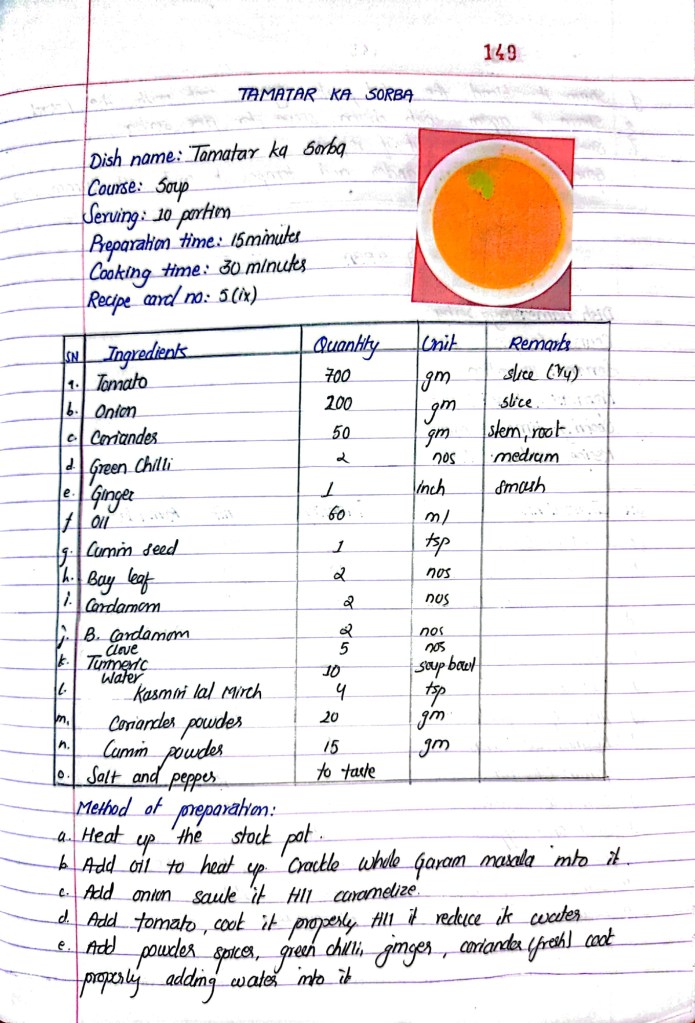 149
TAMATAR KA SORBA
Dish name: Tamatar ka Sorba
Course: Soup
Serving: 10 portion
Preparation time: 15 minutes
Cooking time: 30 minutes
Recipe card no: 5 (ix)
SN Ingredients Quantity Unit Remarks
a. Tomato 700 gm slice (1/4)
b. Onion 200 gm slice
c. Coriander 50 gm stem, root
d. Green Chilli 2 nos medium
e. Ginger 1 inch smash
f Oil 60 ml
g. Cumin seed 1 tsp
h. Bay leaf 2 nos
i. Cardamom 2 nos
j. B. Cardamom 2 nos
Clove 5 nos
k. Turmeric
Water 10 soup bowl
l. Kasmiri lal Mirch 4 tsp
m. Coriander powder 20 gm
n. Cumin powder 15 gm
o. Salt and pepper to taste
Method of preparation:
a. Heat up the stock pot.
b Add oil to heat up. Crackle whole Garam masala into it.
c. Add onion saute it till caramelize.
d. Add tomato, cook it properly till it reduce its water
e. Add powder spices, green chilli, ginger, coriander (fresh) cook
properly adding water into it